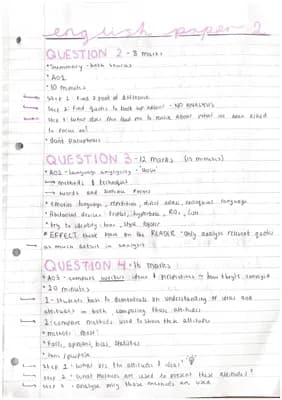 english paper 2
QUESTION 2 - 8 marks
* Summary - both sources
* AO1
* 10 minutes
Step 1: Find 2 point of difference
Step 2: Find quotes to back up point - NO ANALYSIS
Step 3: What does this lead me to make about what we been asked
to focus on?
* dont paraphrase
QUESTION 3 - 12 marks (15 minutes)
* AO2 - Language analysis
methods & techniques
words and
* emotive language, repetition, direct address,
* Rhetorical devices - triples, hyperbole, RQs, lists
* try to identify: tone, style, register
* EFFECT these have on the READER - Only analyse relevant quotes
as much detail in analysis
QUESTION 4 - 16 marks
* AO3 - compare writers ideas & perspectives - how they're conveyed
* 20 minutes
1 - Students have to demonstrate an understanding of ideas and
attitudes in both, comparing their attitudes
2 - compare methods used to show their attitudes
* methods:
* Facts, opinions, bias, statistics
* tone / purpose
Step 1 - What are the attitudes & ideas?
Step 2 - What methods are used to present these attitudes?
Step 3 - analyse how those methods are used